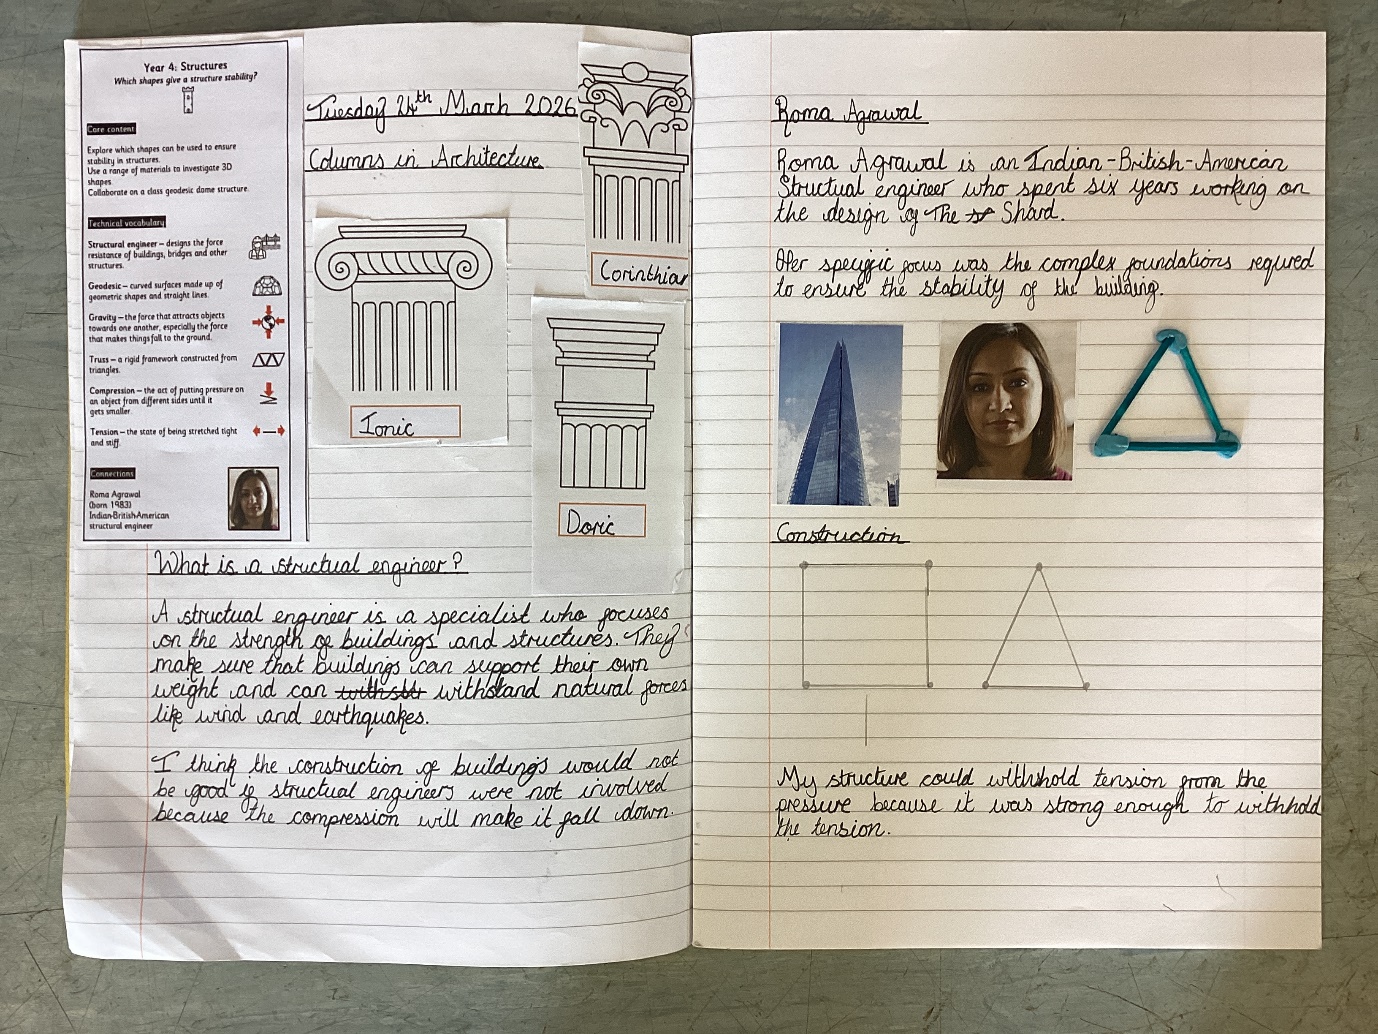 Year 4: Structures
Which shapes give a structure stability?
Core content
Explore which shapes can be used to ensure
stability in structures.
Use a range of materials to investigate 3D
shapes
Collaborate on a class geodesic dome structure.
Technical vocabulary
Structural engineer – designs the force
resistance of buildings, bridges and other
structures.
Geodesic – curved surfaces made up of
geometric shapes and straight lines.
Gravity – the force that attracts objects
towards one another, especially the force
that makes things fall to the ground.
Truss – a rigid framework constructed from
triangles.
Compression – the act of putting pressure on
an object from different sides until it
gets smaller.
Tension – the state of being stretched tight
and stiff.
Connections
Roma Agrawal
(born 1983)
Indian-British-American
structural engineer
Tuesday 24th March 2026
Columns in Architecture
Corinthian
Ionic
Doric
What is a structual engineer?
A structual engineer is a specialist who focuses
on the strength of buildings and structures. They
make sure that buildings can support their own
weight and can withstand natural forces
like wind and earthquakes.
I think the construction of buildings would not
be good if structual engineers were not involved
because the compression will make it fall down.
Roma Agrawal
Roma Agrawal is an Indian-British-American
Structual engineer who spent six years working on
the design of The Shard.
Her specific focus was the complex foundations requred
to ensure the stability of the building.
Construction
My structure could withhold tension from the
pressure because it was strong enough to withhold
the tension.